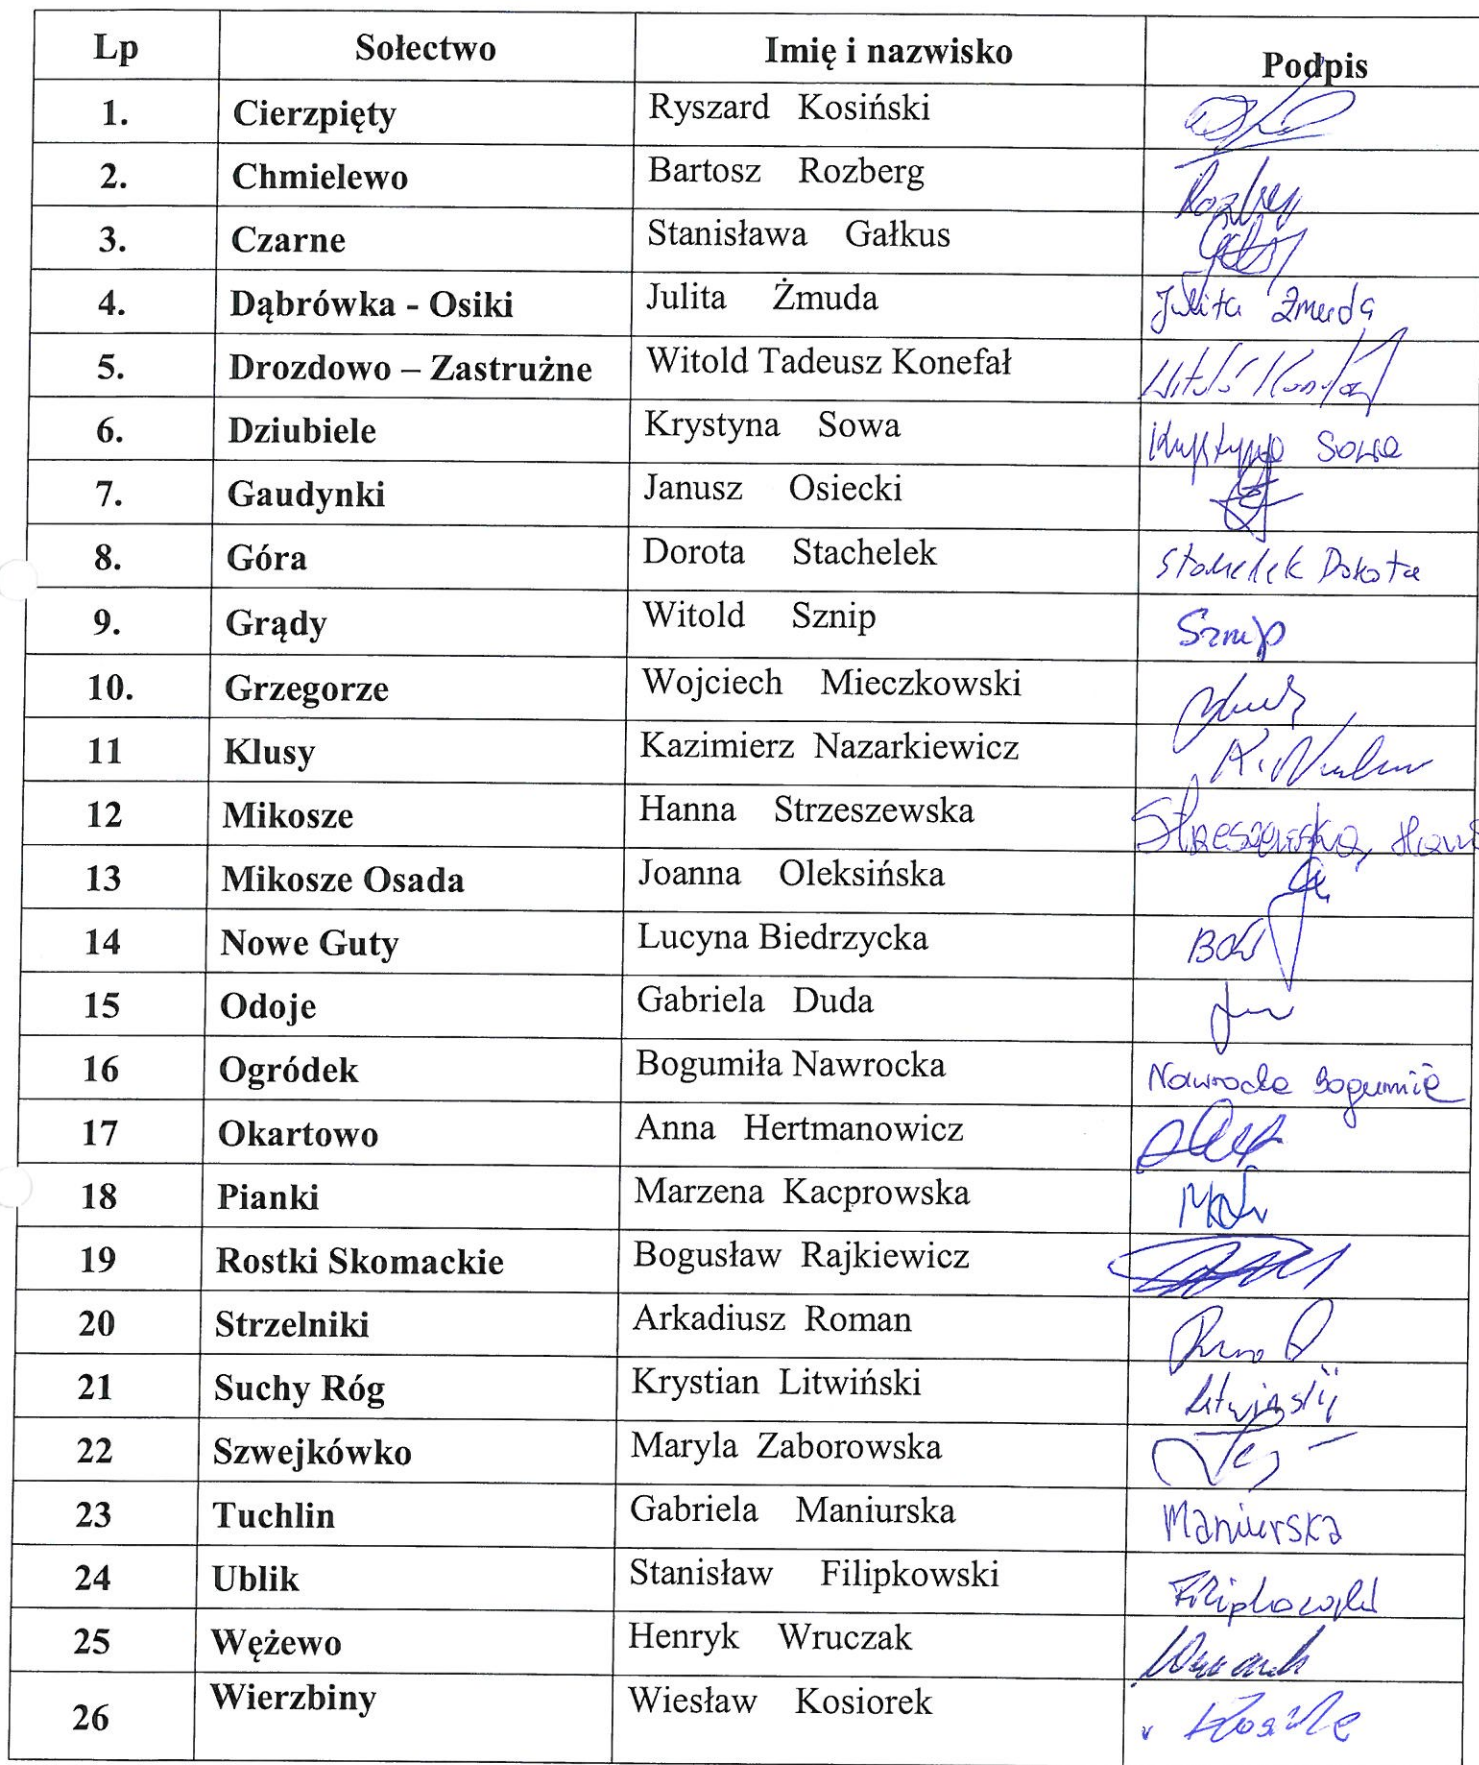 Lp Sołectwo Imię i nazwisko Podpis
1. Cierzpięty Ryszard Kosiński
2. Chmielewo Bartosz Rozberg
3. Czarne Stanisława Gałkus
4. Dąbrówka - Osiki Julita Żmuda Julita Żmuda
5. Drozdowo – Zastrużne Witold Tadeusz Konefał
6. Dziubiele Krystyna Sowa Krystyna Sowa
7. Gaudynki Janusz Osiecki
8. Góra Dorota Stachelek Stachelek Dorota
9. Grądy Witold Sznip Sznip
10. Grzegorze Wojciech Mieczkowski
11 Klusy Kazimierz Nazarkiewicz
12 Mikosze Hanna Strzeszewska
13 Mikosze Osada Joanna Oleksińska
14 Nowe Guty Lucyna Biedrzycka
15 Odoje Gabriela Duda
16 Ogródek Bogumiła Nawrocka Nawrocka
17 Okartowo Anna Hertmanowicz
18 Pianki Marzena Kacprowska
19 Rostki Skomackie Bogusław Rajkiewicz
20 Strzelniki Arkadiusz Roman
21 Suchy Róg Krystian Litwiński
22 Szwejkówko Maryla Zaborowska
23 Tuchlin Gabriela Maniurska Maniurska
24 Ublik Stanisław Filipkowski Filipkowski
25 Wężewo Henryk Wruczak
26 Wierzbiny Wiesław Kosiorek